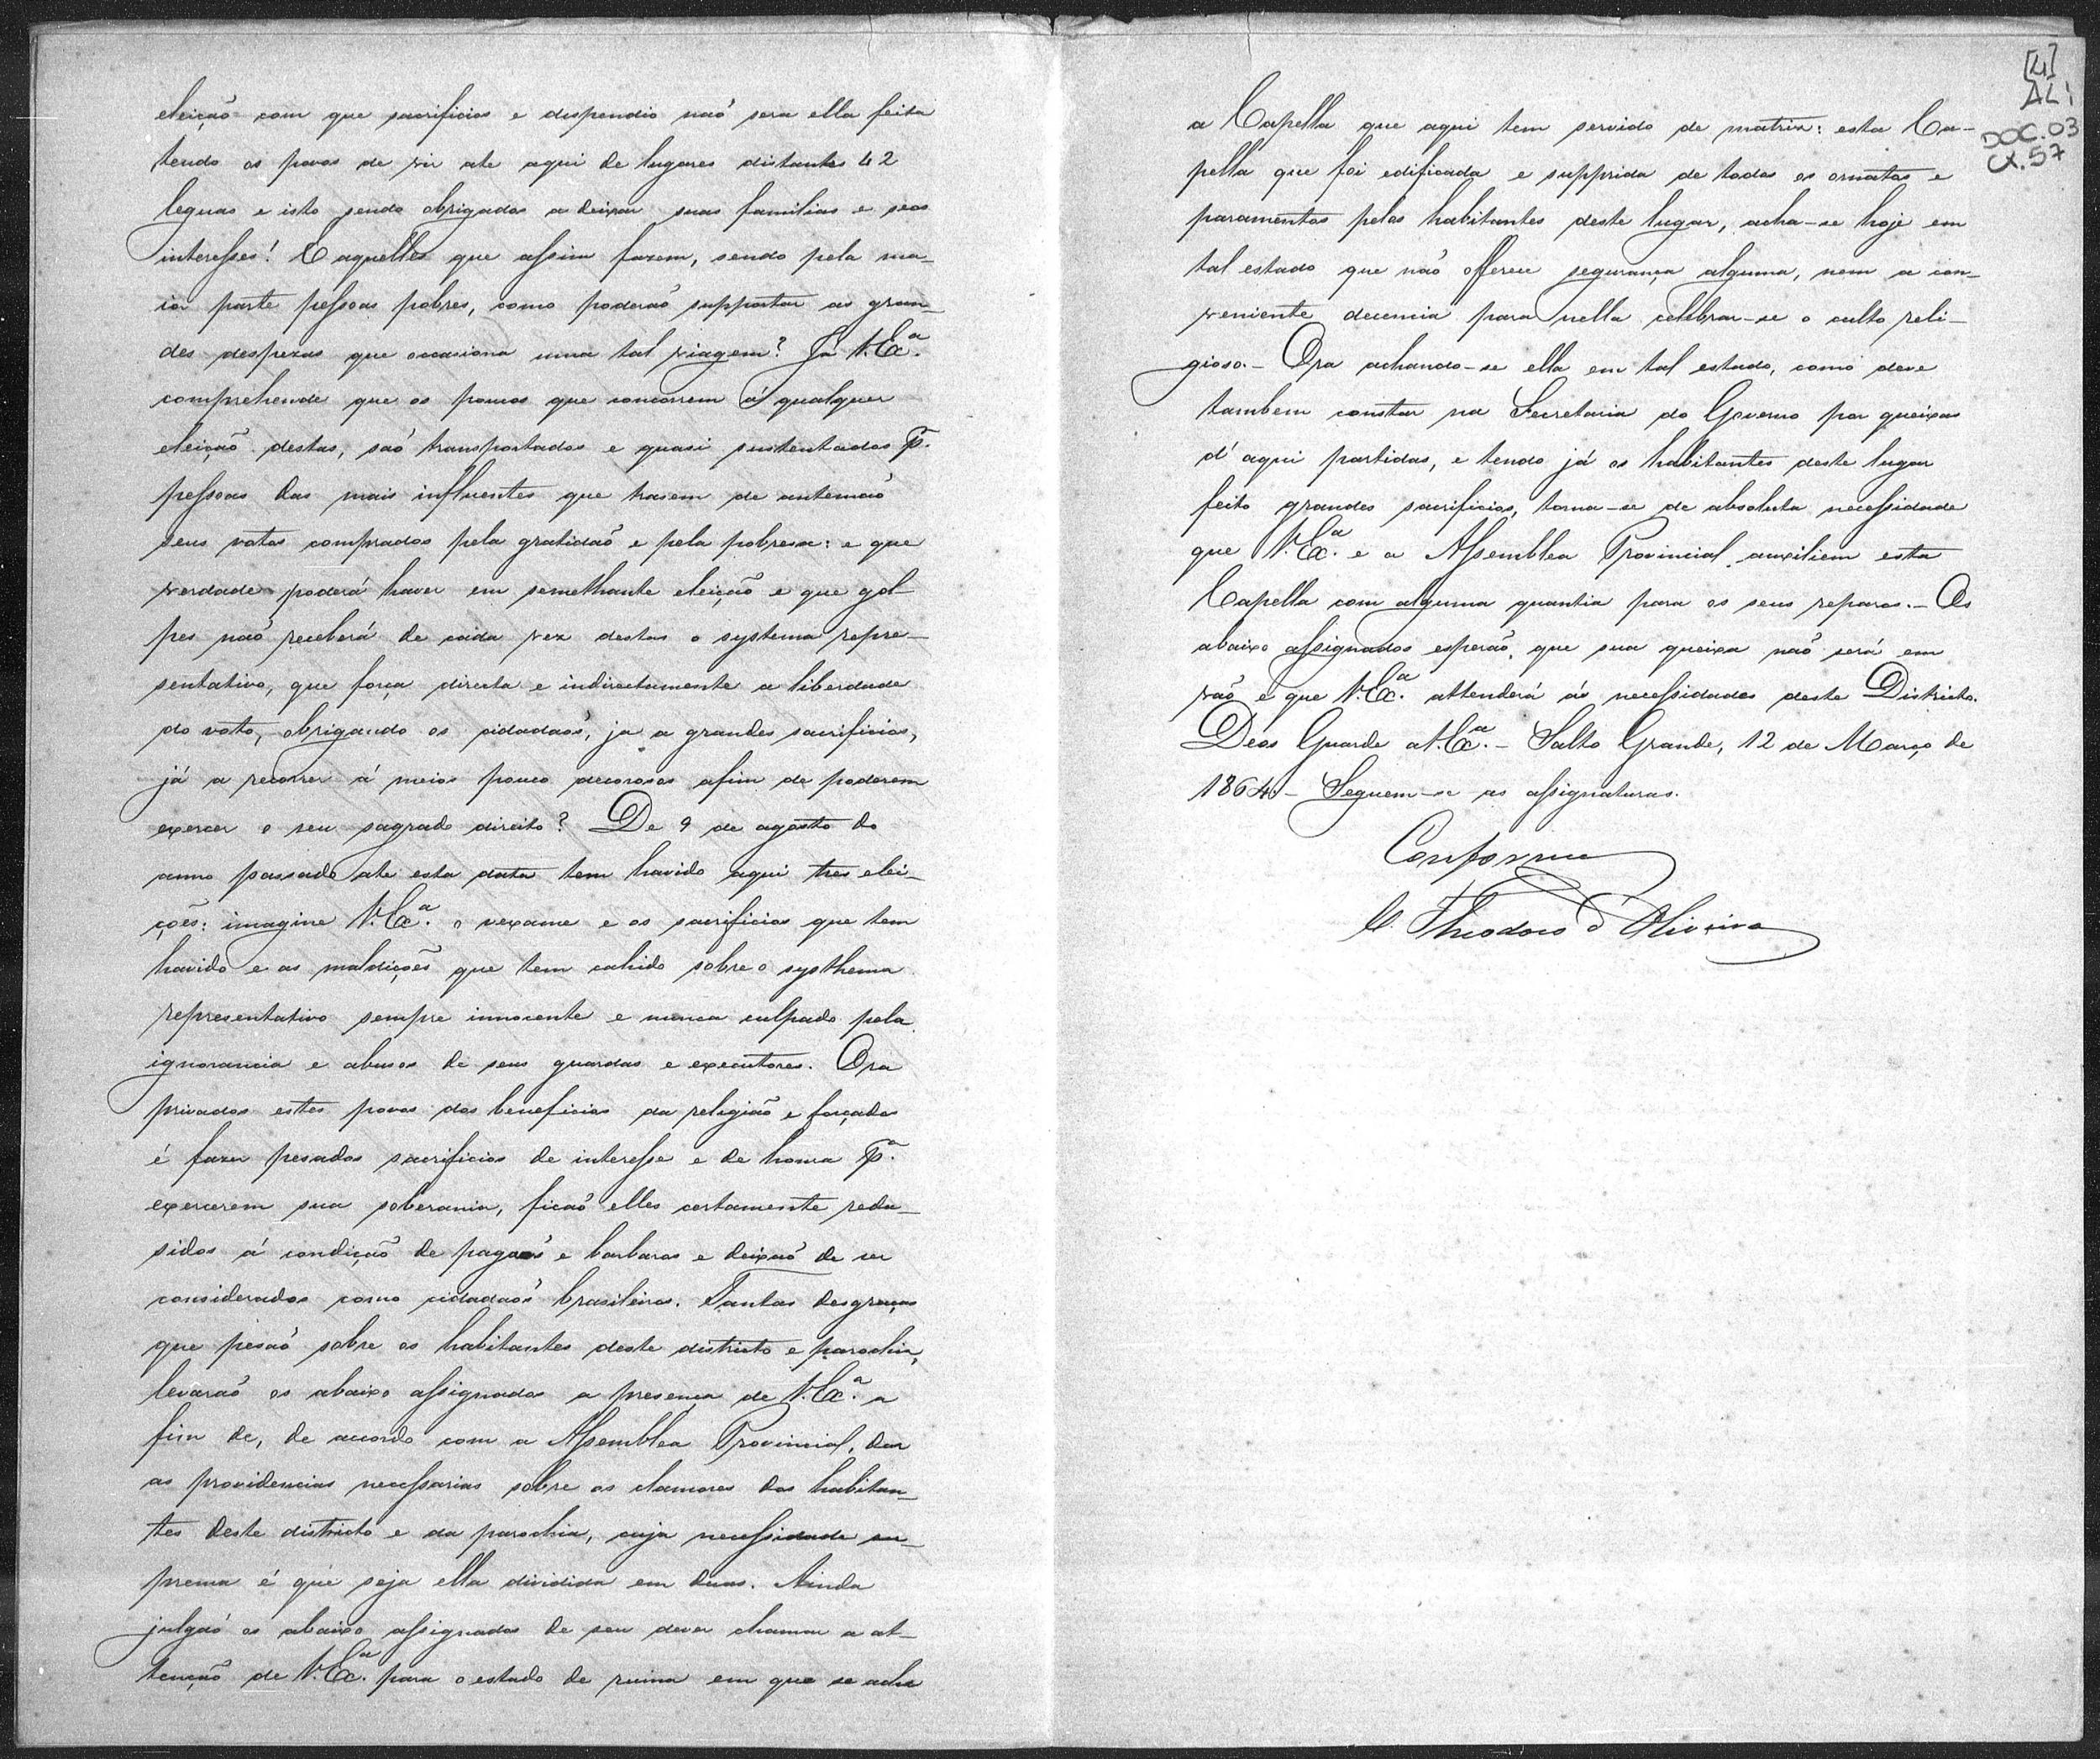 eleição com que sacrificios e dispendio naõ sera ella feita
tendo os povos de vir ate aqui de lugares distantes 42
leguas e isto sendo obrigados a deixar suas familias e seos
interesses! E aquelles que assim fazem, sendo pela ma-
ior parte pessoas pobres, como poderaõ supportar as gran-
des despezas que occasiona uma tal viagem? Já V. Exª.
comprehende que os poucos que concorrem á qualquer
eleiçaõ destas, saõ transportados e quasi sustentados p.
pessoas das mais influentes que trasem de antemaõ
seus votos comprados pela gratidaõ e pela pobresa: e que
verdade poderá haver em semelhante eleiçaõ e que gol-
pes naõ receberá de cada vez destas o systema repre-
sentativo, que força directa e indirectamente a liberdade
do voto, obrigando os cidadaõs, ja a grandes sacrificios,
já a recorrer á meios pouco decorosos afim de poderem
exercer o seu sagrado direito? De 9 de agosto do
anno passado ate esta data tem havido aqui tres elei-
ções: imagine V. Exª. o vexame e os sacrificios que tem
havido e as maldições que tem cahido sobre o systhema
representativo sempre innocente e nunca culpado pela
ignorancia e abusos de seus guardas e executores. Ora
privados estes povos dos beneficios da religiaõ e forçados
é fazer pesados sacrificios de interesse e de honra pª.
exercerem sua soberania, ficaõ elles certamente redu-
sidos á condiçaõ de pagaõs e barbaros e deixaõ de ser
considerados como cidadaõs brasileiros. Tantas desgraças
que pesaõ sobre os habitantes deste districto e parochia,
levaraõ os abaixo assignados a presença de V. Exª. a
fim de, de accordo com a Assemblea Provincial, dar
as providencias necessarias sobre os clamores dos habitan-
tes deste districto e da parochia, cuja necessidade su-
prema é que seja ella dividida em duas. Ainda
julgaõ os abaixo assignados de seu dever chamar a at-
tençaõ de V. Exª. para o estado de ruina em que se acha
[4]
AL1
DOC. 03
CX. 57
a Capella que aqui tem servido de matriz: esta Ca-
pella que foi edificada e supprida de todos os ornatos e
paramentos pelos habitantes deste lugar, acha-se hoje em
tal estado que não offerece segurança alguma, nem a con-
veniente decencia para nella celebrar-se o culto reli-
gioso. - Ora achando-se ella em tal estado, como deve
tambem constar na Secretaria do Governo por queixas
d'aqui partidas, e tendo já os habitantes deste lugar
feito grandes sacrificios, torna-se de absoluta necessidade
que V. Exª. e a Assemblea Provincial auxiliem esta
Capella com alguma quantia para os seus reparos. - Os
abaixo assignados esperaõ, que sua queixa naõ será em
vaõ e que V. Exª. attenderá ás necessidades deste Districto.
Deos Guarde a V. Exª. - Salto Grande, 12 de Março de
1864. - Seguem-se as assignaturas.
Conforme
C. Theodoro d'Oliveira